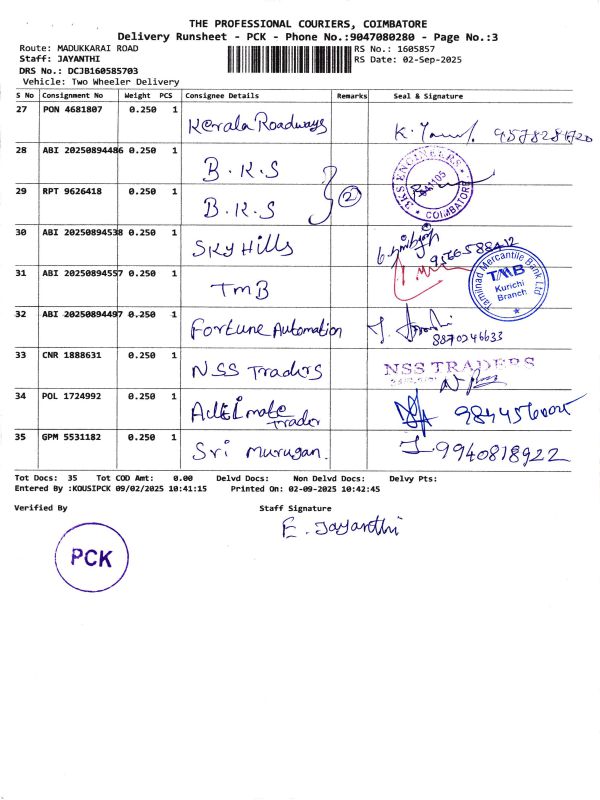 THE PROFESSIONAL COURIERS, COIMBATORE
Delivery Runsheet - PCK - Phone No.:9047080280 - Page No.:3
Route: MADUKKARAI ROAD
RS No.: 1605857
Staff: JAYANTHI
RS Date: 02-Sep-2025
DRS No.: DCJB160585703
Vehicle: Two Wheeler Delivery
S No Consignment No Weight PCS Consignee Details Remarks Seal & Signature
27 PON 4681807 0.250 1 Kerala Roadways
28 ABI 20250894486 0.250 1 B.K.S
29 RPT 9626418 0.250 1 B.K.S 2
3KS ENGINEERS
641105
COIMBATORE
30 ABI 20250894538 0.250 1 Sky Hills
31 ABI 20250894557 0.250 1 TMB
Tamilnad Mercantile Bank Ltd
TMB
Kurichi
Branch
32 ABI 20250894497 0.250 1 Fortune Automation
8870246633
33 CNR 1888631 0.250 1 NSS Traders NSS TRADERS
34 POL 1724992 0.250 1 Trader
35 GPM 5531182 0.250 1 Sri Murugan. 9940818922
Tot Docs: 35 Tot COD Amt: 0.00 Delvd Docs: Non Delvd Docs: Delvy Pts:
Entered By :KOUSIPCK 09/02/2025 10:41:15 Printed On: 02-09-2025 10:42:45
Verified By Staff Signature
E. Jayanthi
PCK